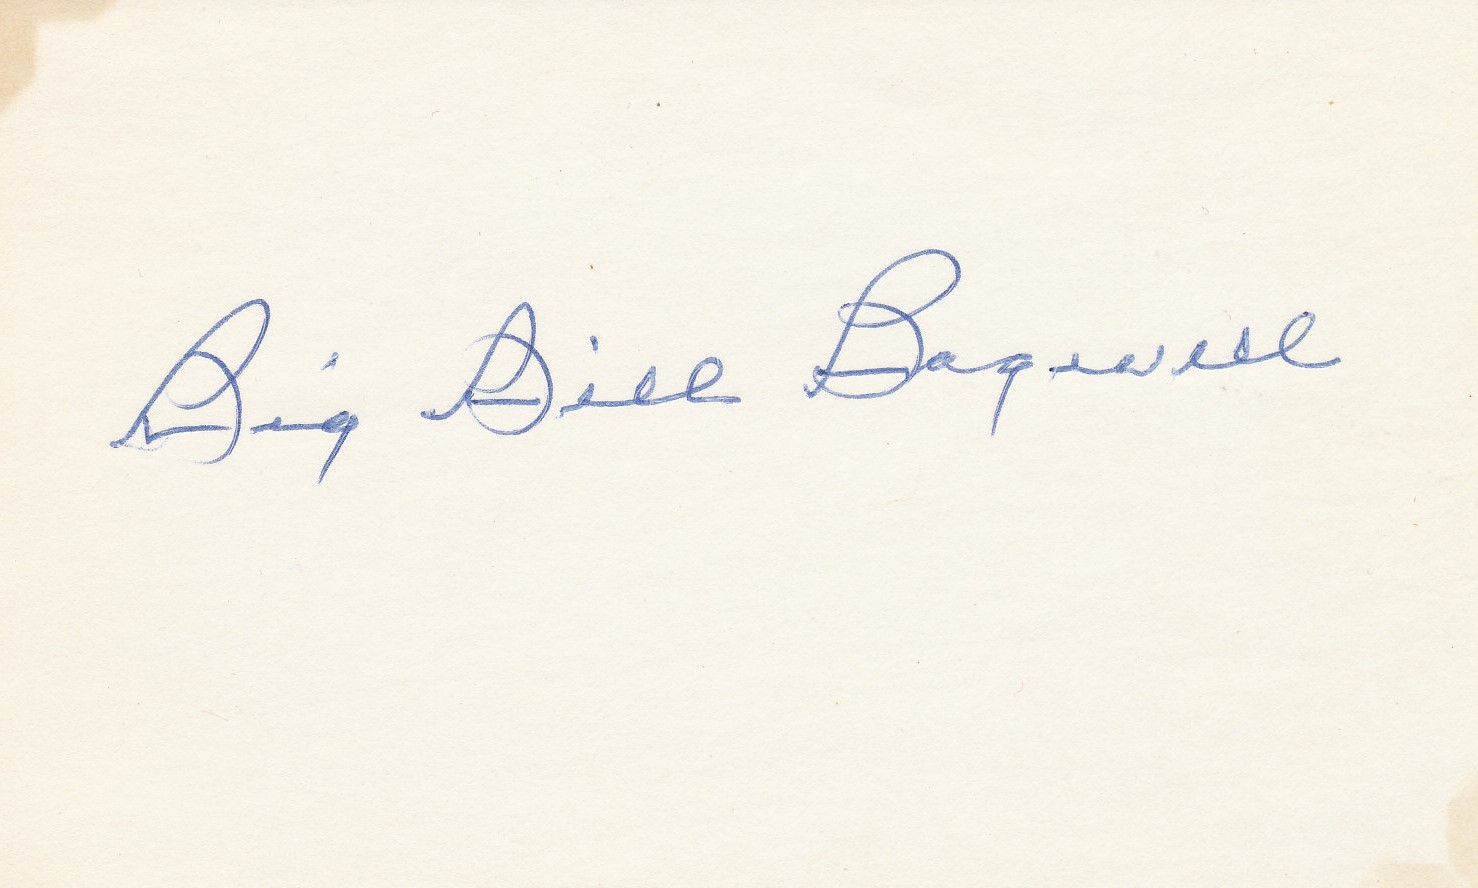 Big Bill Bagwell